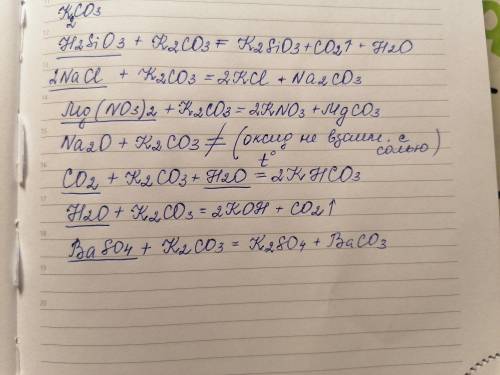 K2CO3
H2SiO3 + K2CO3 = K2SiO3 + CO2↑ + H2O
2NaCl + K2CO3 = 2KCl + Na2CO3
Mg(NO3)2 + K2CO3 = 2KNO3 + MgCO3
Na2O + K2CO3 ≠ (оксид не взаим. с солью)
t°
CO2 + K2CO3 + H2O = 2KHCO3
H2O + K2CO3 = 2KOH + CO2↑
BaSO4 + K2CO3 = K2SO4 + BaCO3